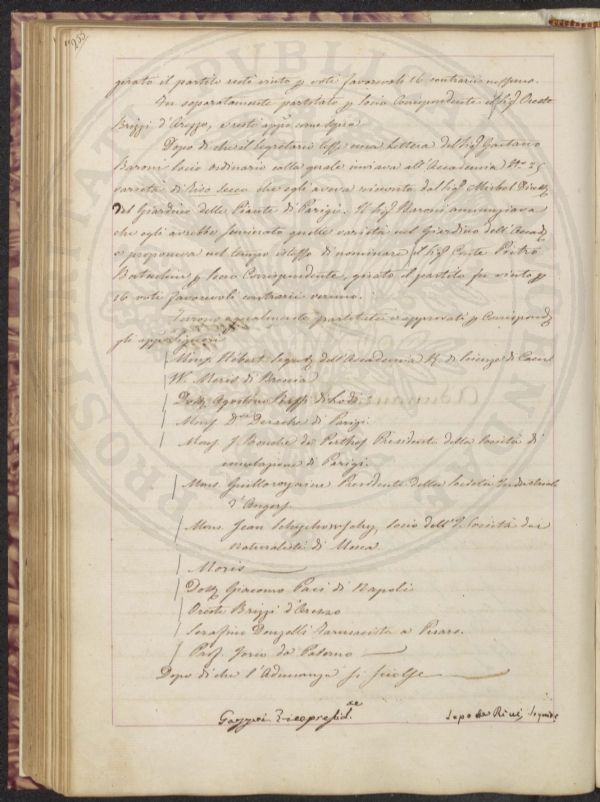 233
girato il partito restò vinto p voti favorevoli 16 contrario nessuno.
Fu separatamente partitato p Socio Corrispondente il Sig. Oreste
Brizzi d'Arezzo, e restò appto come sopra
Dopo di che il Segretario lesse una Lettera del Sig. Gaetano
Baroni Socio ordinario colla quale inviava all'Accademia
varietà di Riso secco che egli aveva ricevuto dal Sig. Mirbel
del Giardino delle Piante di Parigi. Il Sig. Baroni annunziava
che egli avrebbe seminato quelle varietà nel Giardino dell'Accad.
e proponeva nel tempo istesso di nominare il Sig. Conte Pietro
p Socio Corrispondente, girato il partito fu vinto p
16 voti favorevoli contrario veruno.
Furono egualmente partitati e approvati p Corrispond.
gli appresso
Mons. Hébert Segret. dell'Accademia R. di Scienze di Caen
W. Moris di
Dott. Agostino di Lodi
Mons. di Parigi
Mons. J. Boucher de Perthes Presidente della Società di
emulazione di Parigi.
Mons. Presidente della Società Industriale
d'Angers
Mons. Jean Socio dell'I. Società dei
Naturalisti di Mosca
Moris
Dott. Giacomo Paci di Napoli
Oreste Brizzi d'Arezzo
Serafino Donzelli Farmacista a Pesaro
Prof. da Palermo
Dopo di che l'Adunanza si sciolse
Vicepresid.te
de Ricci Segret.
PROSPERITATI PUBLICAE AUGENDAE